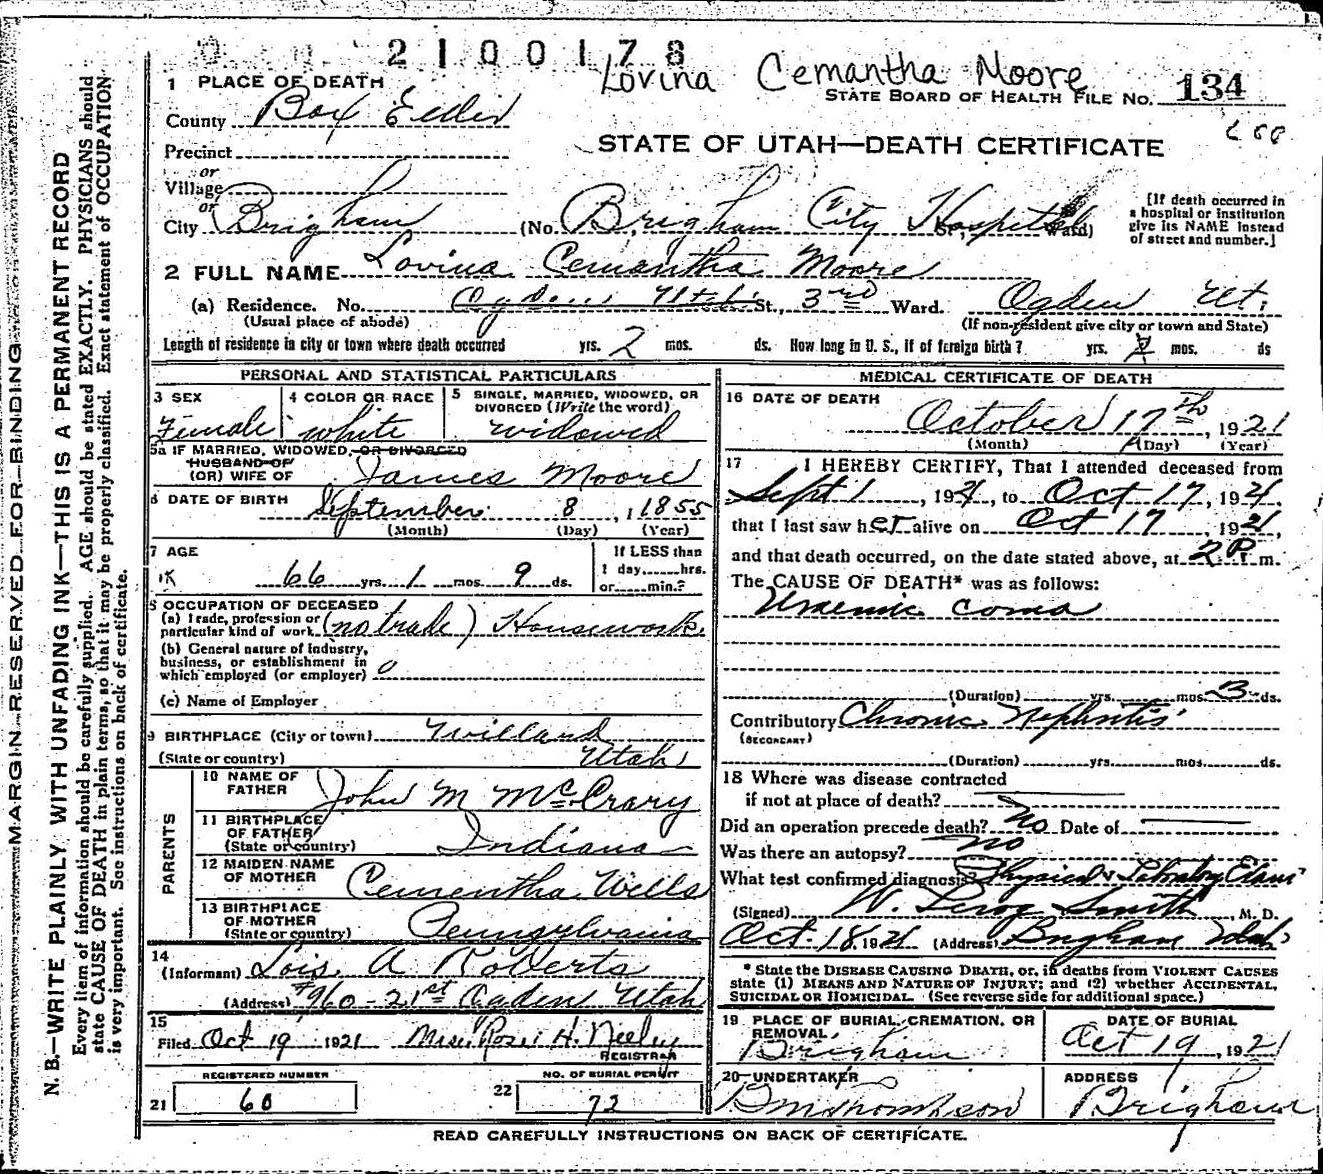 2100178
Lovina Cemantha Moore
1 PLACE OF DEATH
STATE BOARD OF HEALTH FILE NO. 134
County Box Elder
STATE OF UTAH—DEATH CERTIFICATE
Precinct
or
Village
or
City Brigham (No. Brigham City Hospital St., Ward)
[If death occurred in
a hospital or institution
give its NAME instead
of street and number.]
2 FULL NAME Lovina Cemantha Moore
(a) Residence. No. Ogden Utah St., 3rd Ward. Ogden Ut.
(Usual place of abode) (If non-resident give city or town and State)
Length of residence in city or town where death occurred yrs. 2 mos. ds. How long in U. S., if of foreign birth? yrs. mos. ds
PERSONAL AND STATISTICAL PARTICULARS
3 SEX
Female
4 COLOR OR RACE
white
5 SINGLE, MARRIED, WIDOWED, OR
DIVORCED (Write the word)
widowed
5a IF MARRIED, WIDOWED, OR DIVORCED
HUSBAND OF
(OR) WIFE OF James Moore
6 DATE OF BIRTH September 8, 1855
(Month) (Day) (Year)
7 AGE
66 yrs. 1 mos. 9 ds.
If LESS than
1 day, hrs.
or min.?
8 OCCUPATION OF DECEASED
(a) Trade, profession or
particular kind of work (no trade) Housework
(b) General nature of industry,
business, or establishment in
which employed (or employer) 0
(c) Name of Employer
9 BIRTHPLACE (City or town) Willard
(State or country) Utah
PARENTS
10 NAME OF
FATHER John M McCrary
11 BIRTHPLACE
OF FATHER
(State or country) Indiana
12 MAIDEN NAME
OF MOTHER Cementha Wells
13 BIRTHPLACE
OF MOTHER
(State or country) Pennsylvaina
14
(Informant) Lois A Roberts
(Address) #960-21st Ogden Utah
15
Filed Oct 19 1921 Mrs. Rose H. Neeley
REGISTRAR
REGISTERED NUMBER
21 60
NO. OF BURIAL PERMIT
22 72
MEDICAL CERTIFICATE OF DEATH
16 DATE OF DEATH
October 17th, 1921
(Month) (Day) (Year)
17 I HEREBY CERTIFY, That I attended deceased from
Sept 1, 1921, to Oct 17, 1921,
that I last saw her alive on Oct 17, 1921,
and that death occurred, on the date stated above, at 2 P. m.
The CAUSE OF DEATH* was as follows:
Uraemic coma
(Duration) yrs. mos. 3 ds.
Contributory Chronic Nephritis
(SECONDARY)
(Duration) yrs. mos. ds.
18 Where was disease contracted
if not at place of death?
Did an operation precede death? no Date of
Was there an autopsy? no
What test confirmed diagnosis? Physical & Labratory Exam
(Signed) W. Leroy Smith, M. D.
Oct. 18, 1921 (Address) Brigham Utah
* State the DISEASE CAUSING DEATH, or, in deaths from VIOLENT CAUSES
state (1) MEANS AND NATURE OF INJURY; and (2) whether ACCIDENTAL,
SUICIDAL OR HOMICIDAL. (See reverse side for additional space.)
19 PLACE OF BURIAL, CREMATION, OR
REMOVAL
Brigham
DATE OF BURIAL
Oct 19, 1921
20 UNDERTAKER
ADDRESS
Brigham
READ CAREFULLY INSTRUCTIONS ON BACK OF CERTIFICATE.
MARGIN RESERVED FOR BINDING
N. B.—WRITE PLAINLY WITH UNFADING INK—THIS IS A PERMANENT RECORD
Every item of information should be carefully supplied. AGE should be stated EXACTLY. PHYSICIANS should
state CAUSE OF DEATH in plain terms, so that it may be properly classified. Exact statement of OCCUPATION
is very important. See instructions on back of certificate.